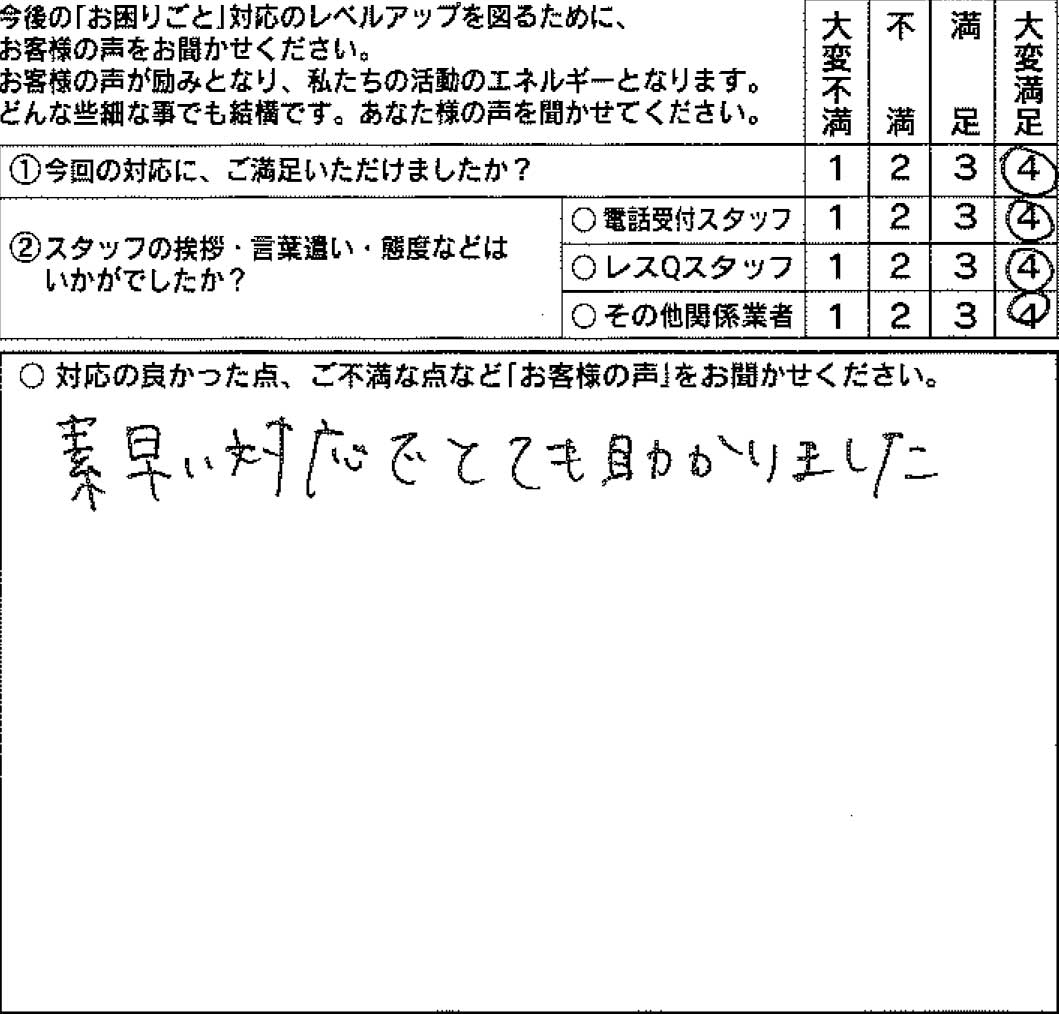 今後の「お困りごと」対応のレベルアップを図るために、
お客様の声をお聞かせください。
お客様の声が励みとなり、私たちの活動のエネルギーとなります。
どんな些細な事でも結構です。あなた様の声を聞かせてください。
大変不満 不満 満足 大変満足
①今回の対応に、ご満足いただけましたか? 1 2 3 4
②スタッフの挨拶・言葉遣い・態度などは
いかがでしたか?
○電話受付スタッフ 1 2 3 4
○レスQスタッフ 1 2 3 4
○その他関係業者 1 2 3 4
○ 対応の良かった点、ご不満な点など「お客様の声」をお聞かせください。
素早い対応でとても助かりました